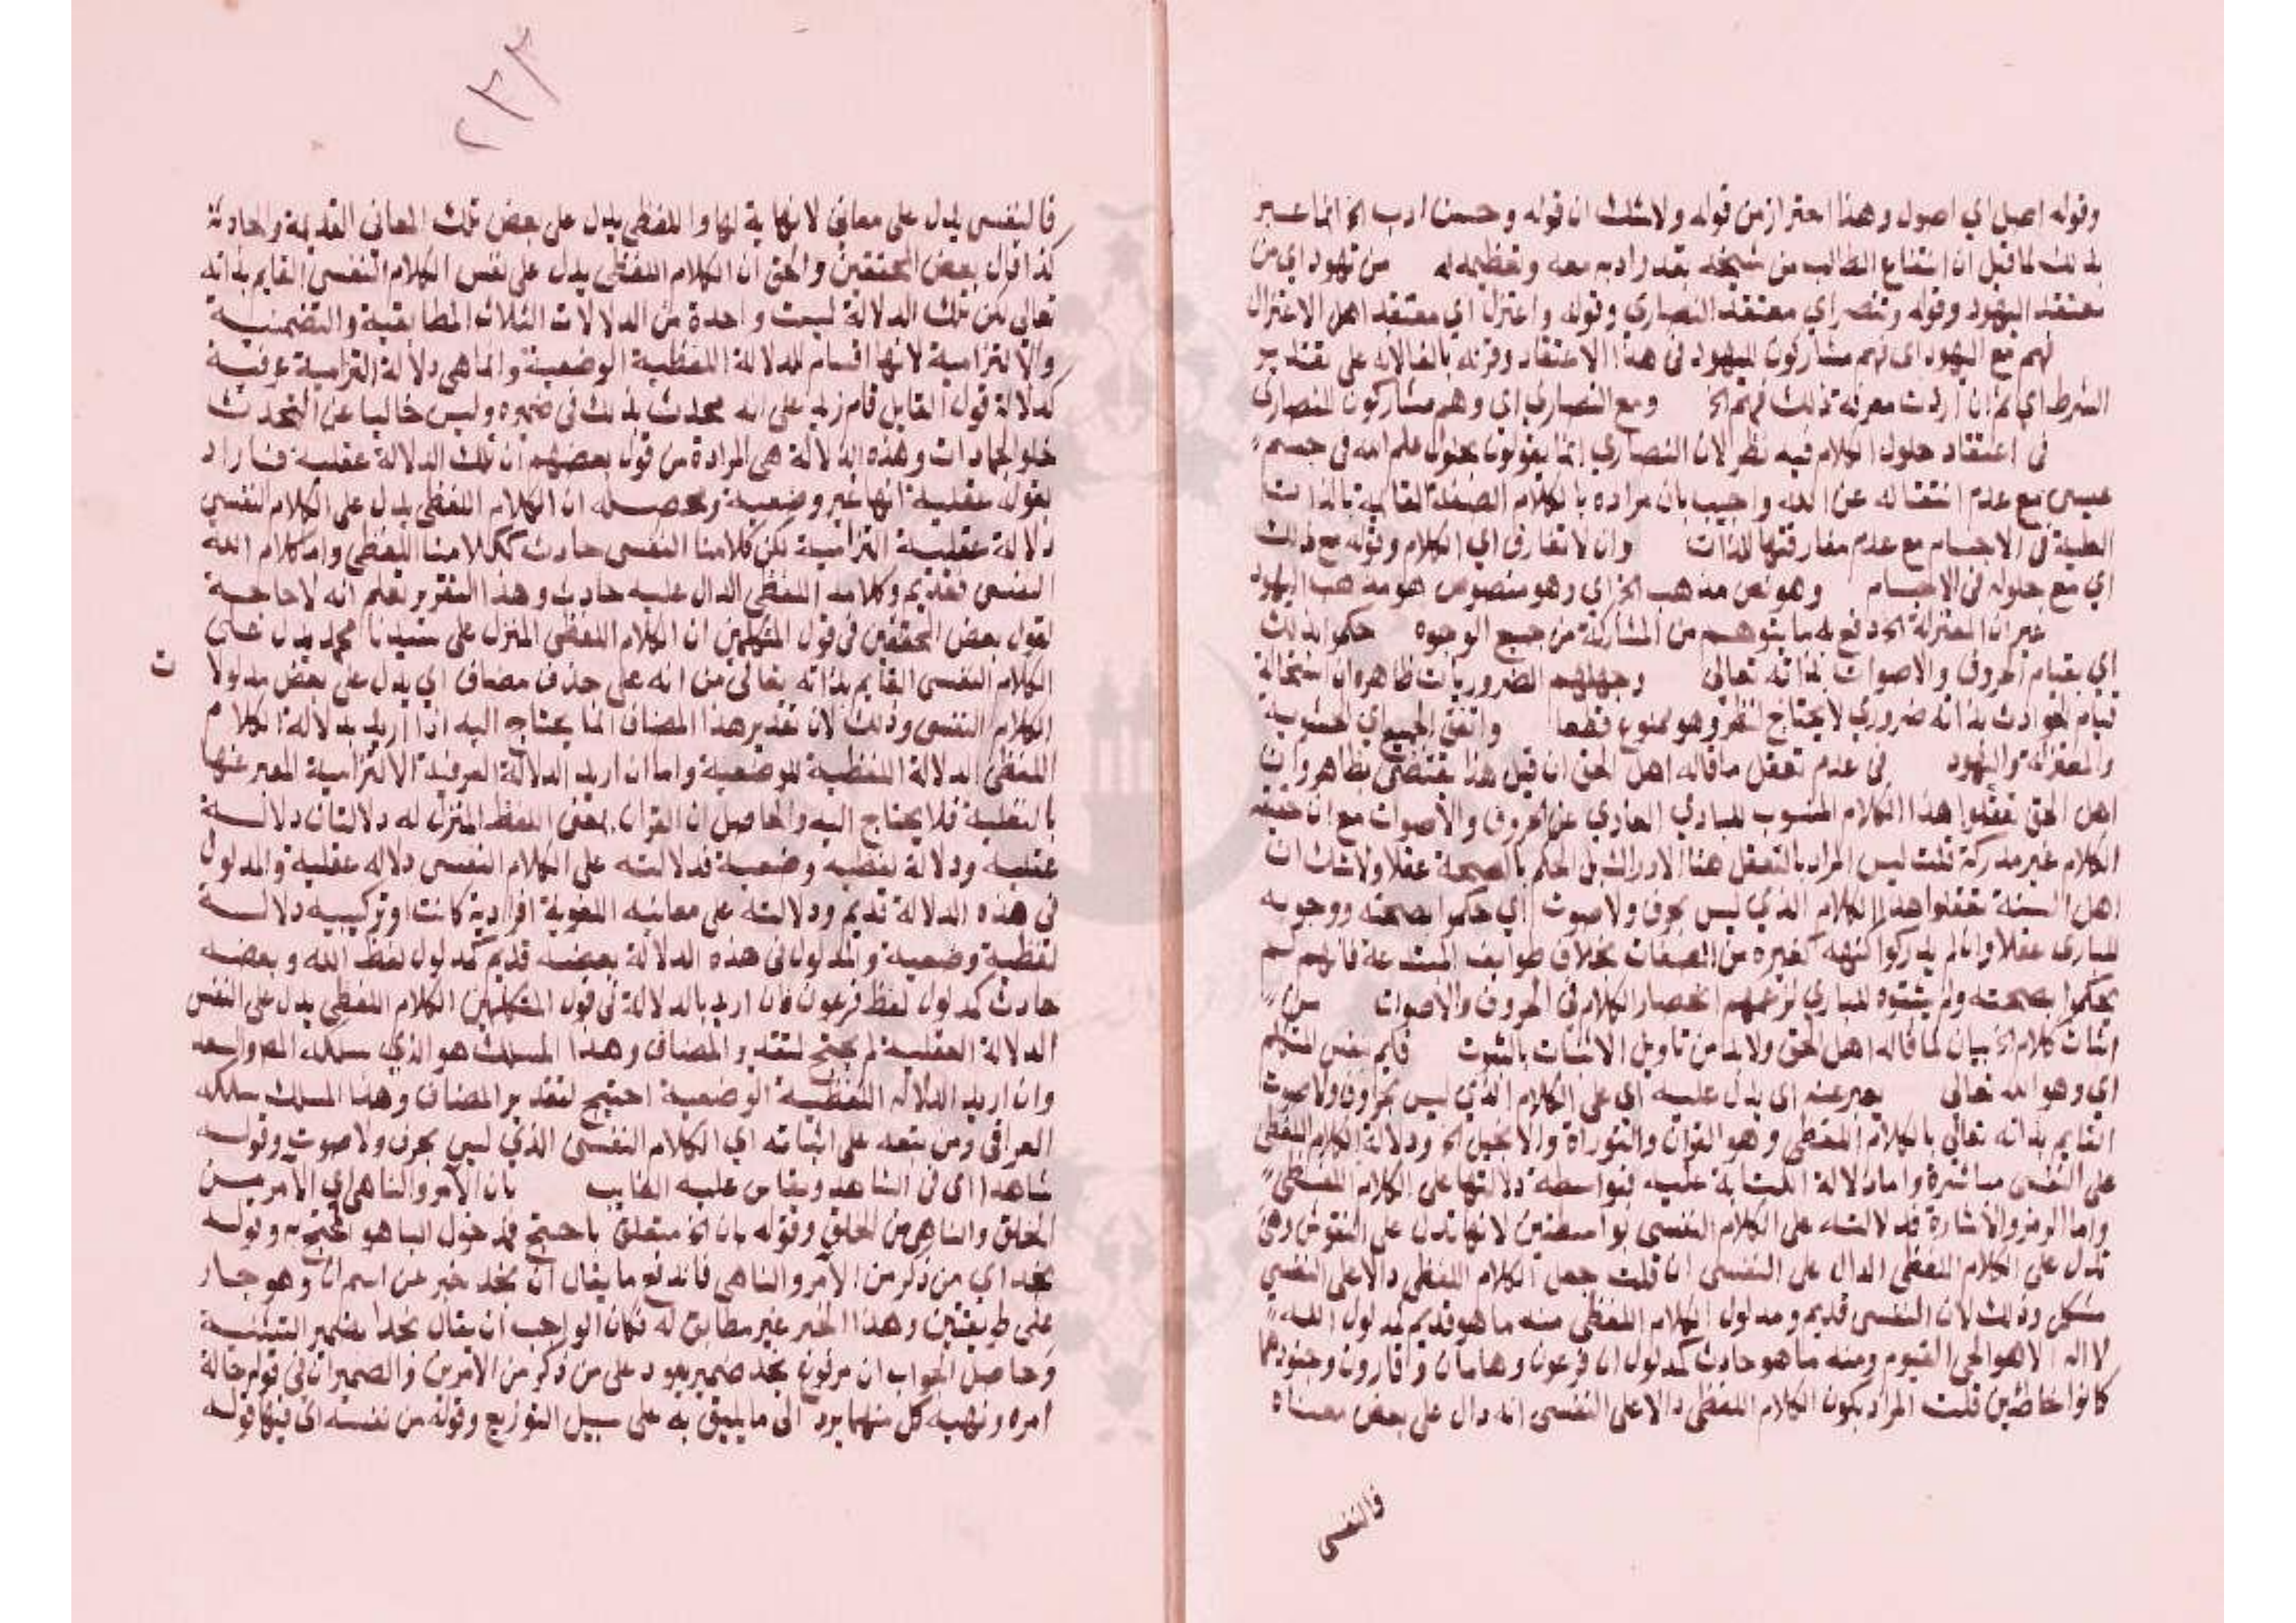 وقوله اصل اي اصول وهذا احتراز من قوله ولاشك ان قوله وحسن ادب الخ انما عبر
بذلك لما قيل ان انتفاع الطالب من شيخه بقدر ادبه معه وتعظيمه له من تهود اي من
معتقد اليهود وقوله وتنصر اي معتقد النصارى وقوله واعتزل اي معتقد اهل الاعتزال
فهم مع اليهود اي فهم مشاركون لليهود في هذا الاعتقاد وقرنه بالفا لانه على تقدير
الشرط اي ان اردت معرفة ذلك فهم الخ ومع النصارى اي وهم مشاركون للنصارى
في اعتقاد حلول الكلام فيه نظر لان النصارى انما يقولون بحلول علم الله في جسم
عيسى مع عدم انتقاله عن الله واجيب بان مراده بالكلام الصفة القايمة بالذات
العلية في الاجسام مع عدم مفارقتها للذات وان لا تفارق اي الكلام وقوله مع ذلك
اي مع حلوله في الاجسام وهو نص مذهب الخ اي وهو منصوص هو مذهب اليهود
غير ان المعتزلة الخ دفع به ما يتوهم من المشاركة من جميع الوجوه حكموا بذلك
اي بقيام الحروف والاصوات بذاته تعالى وجهلهم الضروريات ظاهره ان استحالة
قيام الحوادث بذاته ضروري لا يحتاج لنظر وهو ممنوع قطعا واتفق الجميع اي الحشوية
والمعتزلة واليهود في عدم تعقل ما قاله اهل الحق ان قيل هذا يقتضي بظاهره ان
اهل الحق تعقلوا هذا الكلام المنسوب للباري العاري عن الحروف والاصوات مع ان حقيقة
الكلام غير مدركة قلت ليس المراد بالتعقل هنا الادراك بل الحكم بالصحة عقلا ولاشك ان
اهل السنة تعقلوا هذا الكلام الذي ليس بحرف ولا صوت اي حكموا بصحته ووجوبه
للباري عقلا وان لم يدركوا كنهه كغيره من الصفات بخلاف طوايف المبتدعة فانهم لم
يحكموا بصحته ولم يثبتوه للباري لزعمهم انحصار الكلام في الحروف والاصوات من
اثبات كلام الخ بيان لما قاله اهل الحق ولابد من تاويل الاثبات بالثبوت قايم بنفس المتكلم
اي وهو الله تعالى يعبر عنه اي يدل عليه اي على الكلام الذي ليس بحروف ولا صوت
القايم بذاته تعالى بالكلام اللفظي وهو القران والتوراة والانجيل الخ ودلالة الكلام اللفظي
على النفسي مباشرة واما دلالة الكتابة عليه فبواسطة دلالتها على الكلام اللفظي
واما الرمز والاشارة فدلالته على الكلام النفسي بواسطتين لانها تدل على النقوش وهي
تدل على الكلام اللفظي الدال على النفسي ان قلت جعل الكلام اللفظي دالا على النفسي
مشكل وذلك لان النفسي قديم ومدلول الكلام اللفظي منه ما هو قديم كمدلول الله
لا اله الا هو الحي القيوم ومنه ما هو حادث كمدلول ان فرعون وهامان وقارون وجنودهما
كانوا خاطئين قلت المراد بكون الكلام اللفظي دالا على النفسي انه دال على بعض معناه
فالنفسي
٢٣٣
فالنفسي يدل على معاني لا نهاية لها واللفظي يدل على بعض تلك المعاني القديمة والحادثة
كذا قال بعض المحققين والحق ان الكلام اللفظي يدل على نفس الكلام النفسي القايم بذاته
تعالى لكن تلك الدلالة ليست واحدة من الدلالات الثلاث المطابقية والتضمنية
والالتزامية لانها اقسام للدلالة اللفظية الوضعية وانما هي دلالة التزامية عرفية
كدلالة قول القايل قام زيد على انه محدث بذلك في ضميره وليس خاليا عن التحدث
خلو الجمادات وهذه الدلالة هي المرادة من قول بعضهم ان تلك الدلالة عقلية فاراد
بقوله عقلية انها غير وضعية ومحصله ان الكلام اللفظي يدل على الكلام النفسي
دلالة عقلية التزامية لكن كلامنا النفسي حادث ككلامنا اللفظي واما كلام الله
النفسي فقديم وكلامه اللفظي الدال عليه حادث وهذا التقرير تعلم انه لا حاجة
لقول بعض المحققين في قول المتكلمين ان الكلام اللفظي المنزل على سيدنا محمد يدل على
الكلام النفسي القايم بذاته تعالى من انه على حذف مضاف اي يدل على بعض مدلولا
ت
الكلام النفسي وذلك لان تقدير هذا المضاف انما يحتاج اليه اذا اريد بدلالة الكلام
اللفظي الدلالة اللفظية الوضعية واما ان اريد الدلالة العرفية الالتزامية المعبر عنها
بالعقلية فلا يحتاج اليه والحاصل ان القران بمعنى اللفظ المنزل له دلالتان دلالة
عقلية ودلالة لفظية وضعية فدلالته على الكلام النفسي دلالة عقلية والمدلول
في هذه الدلالة قديم ودلالته على معانيه اللغوية افرادية كانت او تركيبية دلالة
لفظية وضعية والمدلول في هذه الدلالة بعضه قديم كمدلول لفظ الله وبعضه
حادث كمدلول لفظ فرعون فان اريد بالدلالة في قول المتكلمين الكلام اللفظي يدل على النفس
الدلالة العقلية لم يحتج لتقدير المضاف وهذا المسلك هو الذي سلكه المص واسعد
وان اريد الدلالة اللفظية الوضعية احتيج لتقدير المضاف وهذا المسلك سلكه
العراقي ومن تبعه على اثباته اي الكلام النفسي الذي ليس بحرف ولا صوت وقوله
شاهدا اي في الشاهد ويقاس عليه الغايب بان الآمر والناهي اي الآمر من
الخلق والناهي من الخلق وقوله بان الخ متعلق باحتج فمدخول البا هو المحتج به وقوله
يجد اي من ذكر من الآمر والناهي فاندفع ما يقال ان يجد خبر عن اسم ان وهو جار
على طريقتين وهذا الخبر غير مطابق له فكان الواجب ان يقال يجدا بضمير التثنية
وحاصل الجواب ان مرفوع يجد ضمير يعود على من ذكر من الآمرين والضميران في قوله حالة
امره ونهيه كل منهما يرد الى ما يليق به على سبيل التوزيع وقوله من نفسه اي فيها قوله